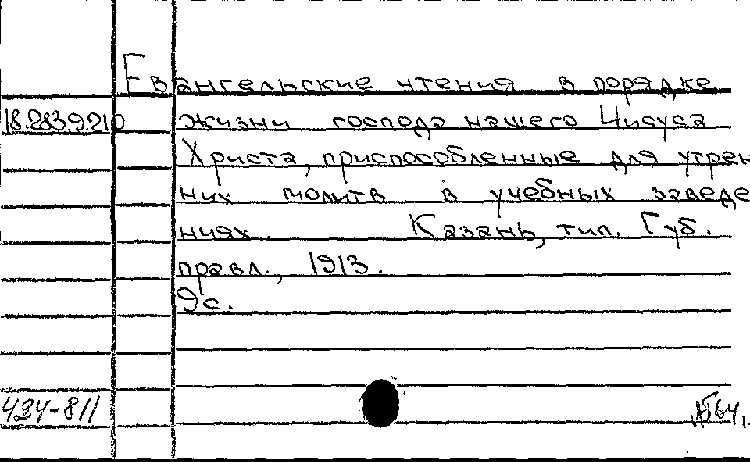 Евангельские чтения в порядке
18.283.9.210 жизни господа нашего Иисуса
Христа, приспособленные для утрен
них молитв в учебных заведе
ниях. Казань, тип. Губ.
правл., 1913.
9с.
424-811